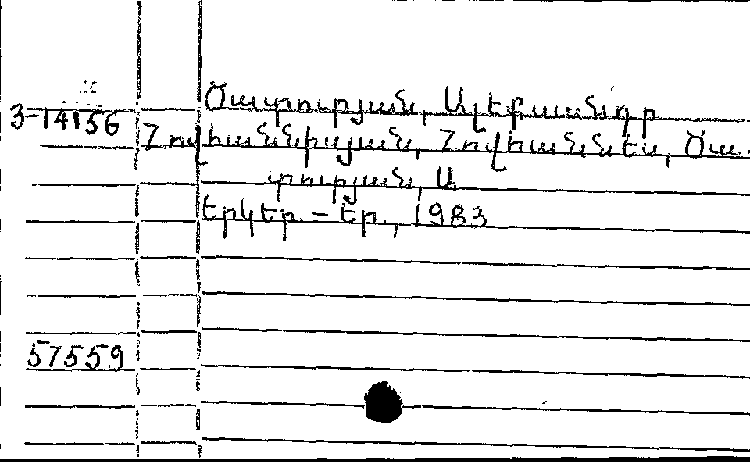 Ծատուրյան, Ալեքսանդր
3-14156
Հովհաննիսյան, Հովհաննես, Ծա-
տուրյան, Ա.
Երկեր. – Եր., 1983
57559